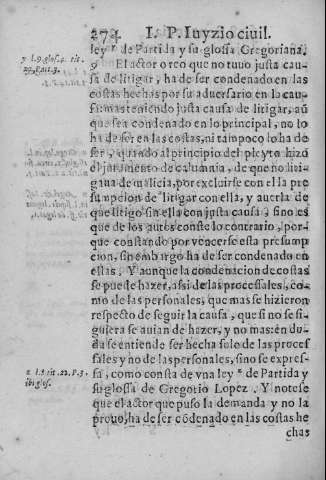 274. I. P. Iuyzio ciuil.
ley r de Partida y su glossa Gregoriana.
y l.9.glos.4. tit.
9 El actor o reo que no tuuo justa cau-
sa de litigar, ha de ser condenado en las
costas hechas por su aduersario en la cau-
sa: mas teniendo justa causa de litigar, aũ
que sea condenado en lo principal, no lo
ha de ser en las costas, ni tampoco lo ha de
ser, quando al principio del pleyto hizo
el juramento de calumnia, de que no liti-
gana de malicia, por excluirse con el la pre
sumpcion de litigar con ella, y auerla de
que litigo sin ella con justa causa, sino es
que de los autos conste lo contrario, por-
que constando por vencerse esta presump
cion, sin embargo ha de ser condenado en
ellas. Y aunque la condenacion de costas
se puede hazer, assi de las processales, co-
mo de las personales, que mas se hizieron
respecto de seguir la causa, que si no se si-
guiera se auian de hazer, y no mas: en du-
da se entiende ser hecha solo de las proces
sales y no de las personales, sino se expres-
z l.8 tit.22.P.3.
ibi glos.
sa, como consta de vna ley z de Partida y
su glossa de Gregorio Lopez. Y notese
que el actor que puso la demanda y no la
prouo, ha de ser cõdenado en las costas he
chas